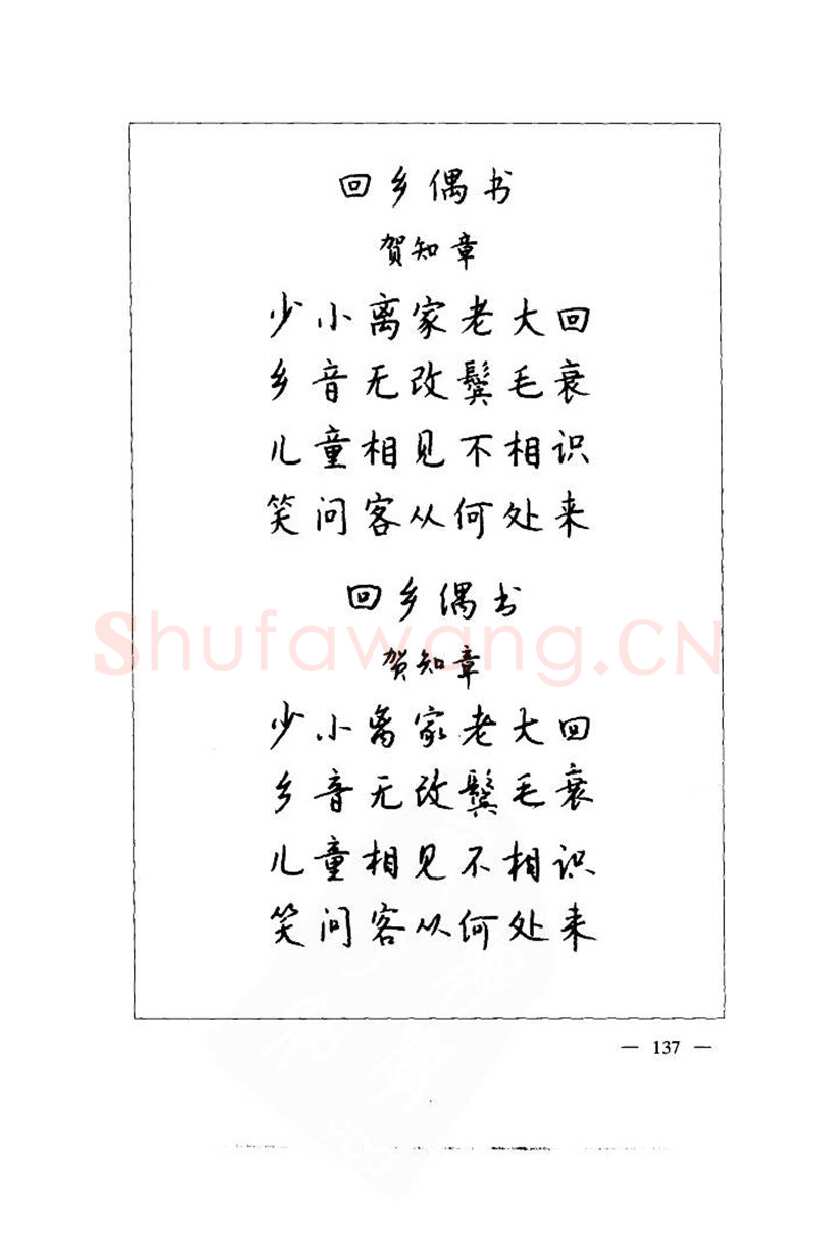 回乡偶书
贺知章
少小离家老大回
乡音无改鬓毛衰
儿童相见不相识
笑问客从何处来
回乡偶书
Shufawang.CN
贺知章
少小离家老大回
乡音无改鬓毛衰
儿童相见不相识
笑问客从何处来
— 137 —